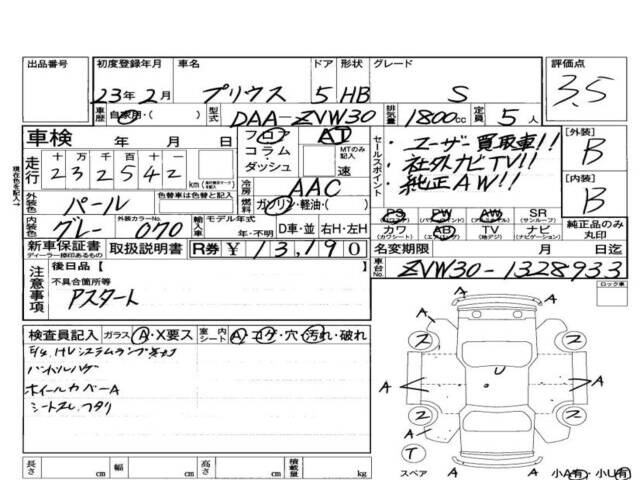 出品番号 初度登録年月 車名 ドア 形状 グレード 評価点
23年2月 プリウス 5 HB S 3.5
車歴 自家用・( ) 型式 DAA-ZVW30 排気量 1800cc 定員 5人
車検 年 月 日 フロア AT
コラム・ダッシュ MTのみ記入 速
走行 十 万 千 百 十 一
2 3 2 5 4 2 km
セールスポイント
・ユーザー買取車!!
・社外ナビTV!!
・純正AW!!
[外装] B
[内装] B
冷房 AAC
外装色 パール 色替車は色替と記入
燃料 ガソリン・軽油・( )
内装色 グレー 外装カラーNo. 070 輸入車 モデル年式 年・不明 D車・並 右H・左H
PS PW AW SR
(パワステ) (パワーウインドウ) (アルミホイール) (サンルーフ)
カワ AB TV ナビ
(カワシート) (エアバッグ) (地デジ) (ナビゲーション)
純正品のみ丸印
新車保証書 取扱説明書 R券 ¥13,190
ディーラー捺印あるもの
名変期限 月 日迄
車台No. ZVW30-1328933
注意事項 後日品[ ]
不具合箇所等
アスタート
ロック車
検査員記入 ガラス A・X要ス 室内シート A・コゲ・穴・汚れ・破れ
ハンドルハゲ
ホイールカバーA
シートスレ、
A A
A A
2 2
A U A
2 2
A
T
スペア A A 小A有・小U有
長さ cm 幅 cm 高さ cm 積載量 kg